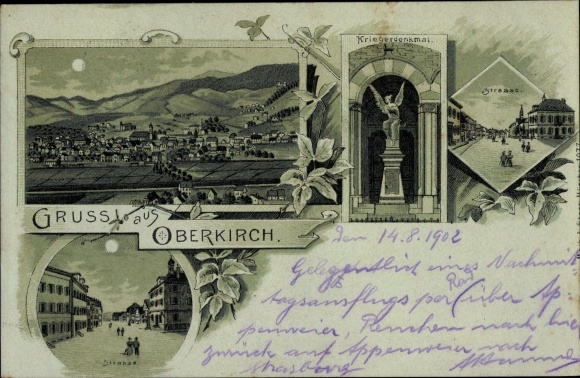 Kriegerdenkmal.
Strasse.
GRUSS aus
OBERKIRCH.
Strasse
den 14.8.1902
Gelegentlich eines Nachmit
tagsausflugs per Rad über Ap
penweier, Renchen nach hier
zurück auf Appenweier nach
Strasbourg